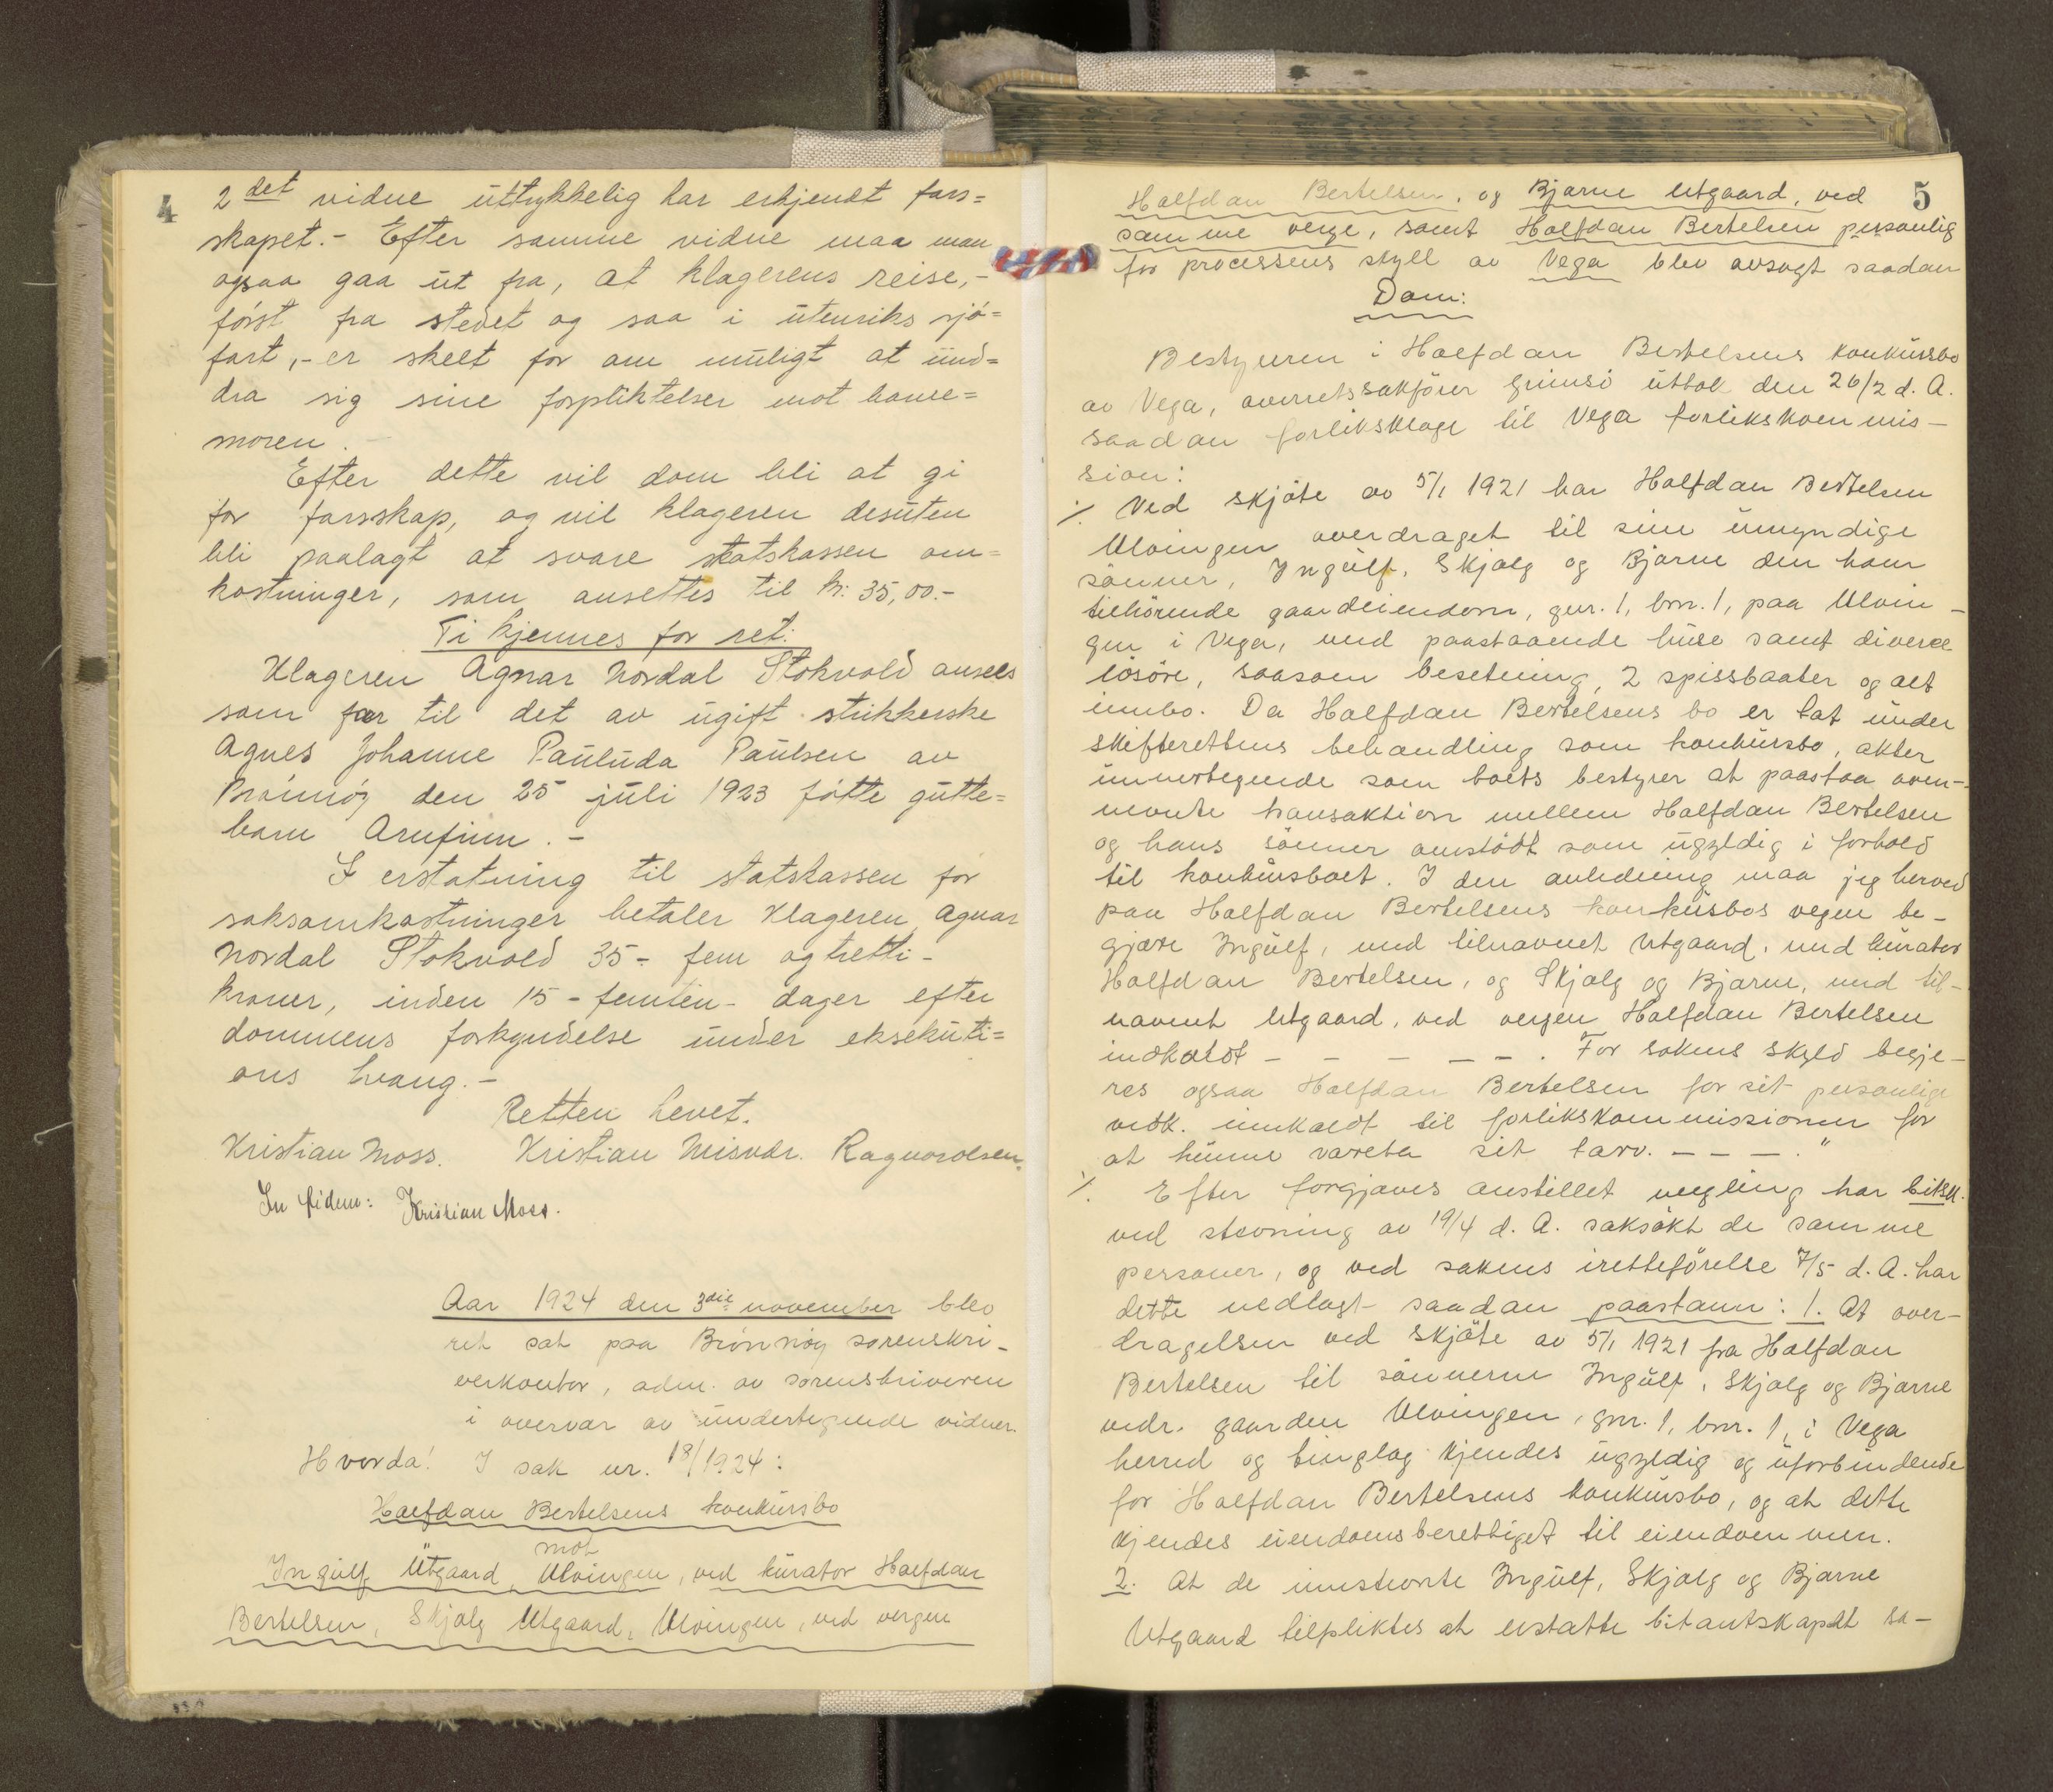 4
2det vidne uttrykkelig har erkjendt fars=
skapet.- Efter samme vidne maa man
ogsaa gaa ut fra, at klagerens reise,-
først fra stedet og saa i utenriks sjø=
fart,- er skeet for om muligt at und=
dra sig sine forpliktelser mot barne=
moren.
Efter dette vil dom bli at gi
for farsskap, og vil klageren desuten
bli paalagt at svare statskassen om=
kostninger, som ansettes til kr. 35,00.-
Ti kjennes for ret:
Klageren Agnar Nordal Stokvold ansees
som far til det av ugift strikkerske
Agnes Johanne Pauluda Paulsen av
Brønnøy den 25 juli 1923 føtte gutte=
barn Arnfinn.-
I erstatning til statskassen for
saksomkostninger betaler klageren Agnar
Nordal Stokvold 35- fem og tretti-
kroner, inden 15 - femten- dager efter
dommens forkyndelse under eksekuti=
ons tvang.-
Retten hevet.
Kristian Moss. Kristian Misvær. Ragnv Olsen.
In fidem: Kristian Moss.
Aar 1924 den 3die november blev
ret sat paa Brønnøy sorenskri-
verkontor, adm. av sorenskriveren
i overvær av undertegnede vidner.
Hvorda! I sak nr. 18/1924:
Halfdan Bertelsens konkursbo
mot
Ingulf Utgaard, Ulvingen, ved kurator Halfdan
Bertelsen, Skjalg Utgaard, Ulvingen, ved vergen
5
Halfdan Bertelsen, og Bjarne Utgaard, ved
samme verge, samt Halfdan Bertelsen personlig
for processens skyll av Vega blev avsagt saadan
Dom:
Bestyreren i Halfdan Bertelsens konkursbo
av Vega, overretssakfører Grimsø uttok den 26/2 d. A.
saadan forliksklage til Vega forlikskommis-
sion:
⁒ Ved skjøte av 5/1 1921 har Halfdan Bertelsen
Ulvingen overdraget til sine umyndige
sønner, Ingulf, Skjalg og Bjarne den ham
tilhørende gaardeiendom, gnr. 1, bnr. 1, paa Ulvin-
gen i Vega, med paastaaende huse samt diverse
løsøre, saasom besetning, 2 spissbaater og alt
innbo. Da Halfdan Bertelsens bo er tat under
skifterettens behandling som konkursbo, akter
undertegnede som boets bestyrer at paastaa oven-
nevnte transaktion mellem Halfdan Bertelsen
og hans sønner omstødt som ugyldig i forhold
til konkursboet. I den anledning maa jeg herved
paa Halfdan Bertelsens konkusbos vegne be-
gjære Ingulf, med tilnavnet Utgaard, med kurator
Halfdan Bertelsen, og Skjalg og Bjarne, med til-
navnet Utgaard, ved vergen Halfdan Bertelsen
indkaldt - - - - - -. For sakens skyld begjæ-
res ogsaa Halfdan Bertelsen for sit personlige
vedk. innkaldt til forlikskommissionen for
at kunne vareta sit tarv. - - - ."
⁒ Efter forgjæves anstillet megling har citsk.
ved stevning av 19/4 d. A. saksøkt de samme
personer, og ved sakens iretteførelse 7/5 d. A. har
dette nedlagt saadan paastann: 1. At over-
dragelsen ved skjøte av 5/1 1921 fra Halfdan
Bertelsen til sønnerne Ingulf, Skjalg og Bjarne
vedr. gaarden Ulvingen, gnr. 1, bnr. 1, i Vega
herred og tinglag kjendes ugyldig og uforbindende
for Halfdan Bertelsens konkursbo, og at dette
kjendes eiendomsberettiget til eiendommen.
2. At de innstevnte Ingulf, Skjalg og Bjarne
Utgaard tilpliktes at erstatte citantskapet sa-